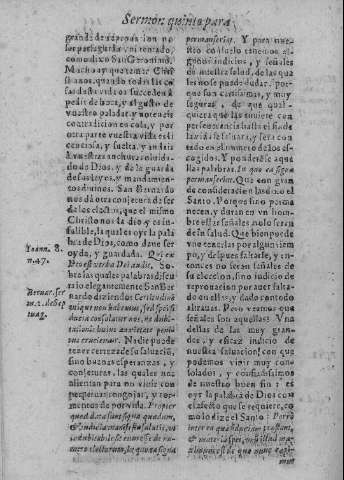 Sermon quinto para
grande de
ser perseguida, ni tentado,
como dixo San Geronimo.
Mucho ay que temer Chri
stianos, quando todas las co
sas desta vida os succeden a
pedir de boca, y al gusto de
vuestro paladar, y no teneis
contradicion en cosa, y por
otra parte vuestra vida es li
cenciosa, y suelta, y andais
a vuestras anchuras olvida-
do de Dios, y de la guarda
de sus leyes, y mandamien-
tos divinos. San Bernardo
nos da otra conjectura de ser
de los electos, que el mismo
Christo nos la dio y es in-
falible, la qual es oyr la pala
bra de Dios, como deve ser
oyda, y guardada. Qui ex
Deo est verba Dei audit. So-
bre las quales palabras discu
rio elegantemente San Ber-
nardo diziendo: Certitudinē
utique non habemus, sed spei fi
ducia consolatur nos, ne dubi-
tationis huius anxietate penitus
crucientur. Nadie puede
tener certeza de su salvaciō,
sino buenas esperanças, y
conjeturas, las quales nos
alientan para no vivir con
perpetua congoja, y tor-
mento de por vida. Propter
quod data sunt signa quædam,
& indicia manifesta salutis, ut
indubitabile sit eum esse de nu-
mero electorum, in quo ea signa
Ioann. 8.
n. 47.
Bernar. ser
m. 1. de Sep
tuag.
permanserint. Y para nue-
stro consuelo tenemos al-
gunos indicios, y señales
de nuestra salud, de las qua
les no se puede dudar, porque
son certissimas, y muy
seguras, de que qual-
quiera que las tuviere con
perseverancia hasta el fin de
la vida se salvara, y sera con
tado en el numero de los es-
cogidos. Y ponderese aque
llas palabras. In quo ea signa
permanserint. Que con gran
de consideracion las dixo el
Santo. Porque sino perma
necen, y duran en un hom-
bre essas señales no lo seran
de su salud. Que bien pode
uno tenerlas por algun tiem
po, y despues faltarle, y en-
tonces no seran señales de
su eleccion, sino indicio de
reprovacion por aver faltado
en ellas, y dado con todo
al traste. Pero veamos que
señales son aquellas? Una
dellas de las muy gran-
des, y eficaz indicio de
nuestra salvacion! con que
podemos vivir muy con
solados, y confiadissimos
de nuestro buen fin: es
oyr la palabra de Dios con
el afecto que se requiere, co
mo lo dize el Santo: